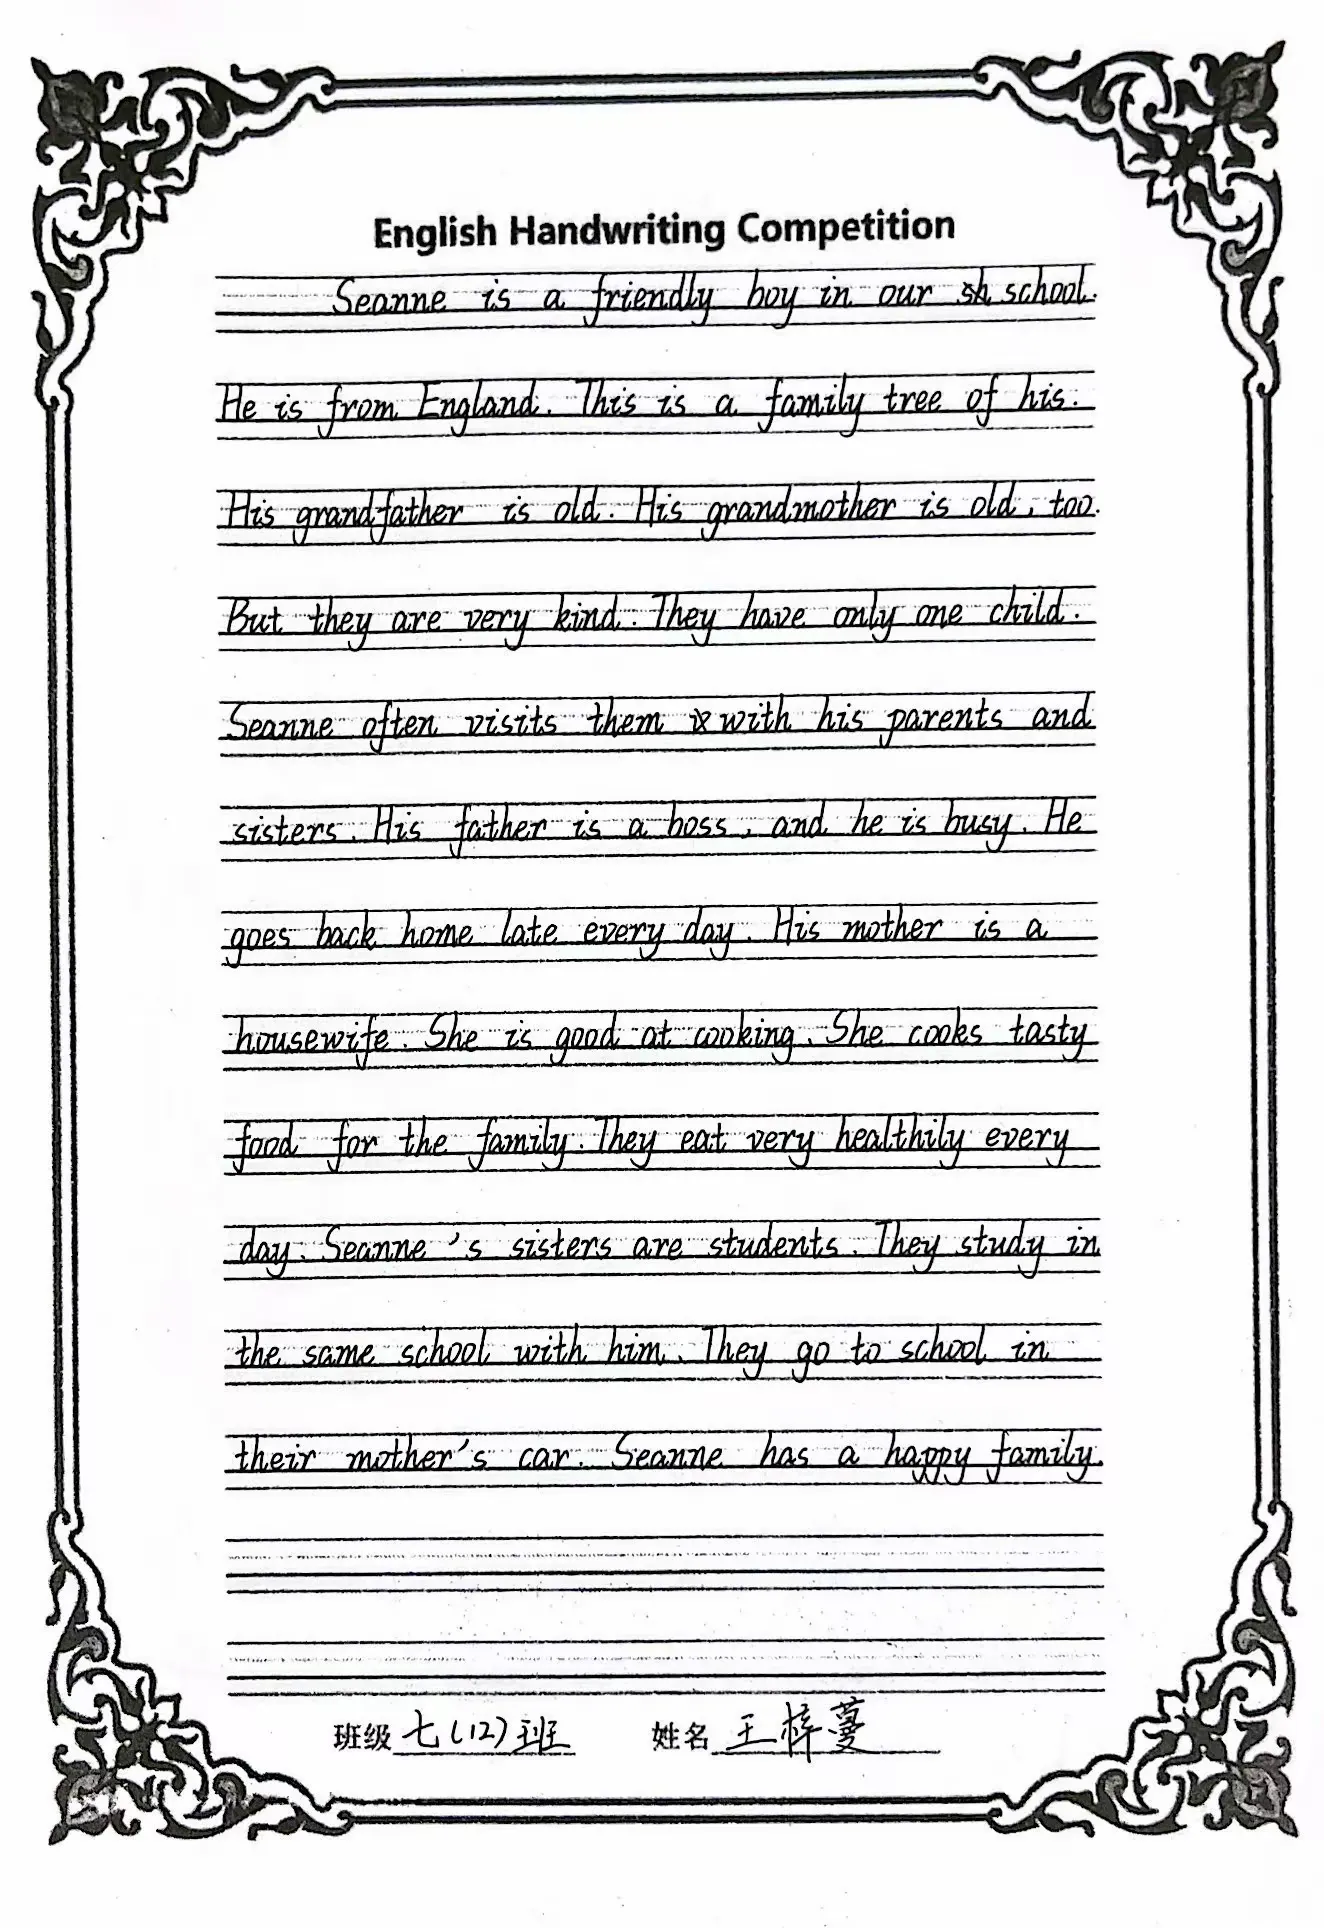 English Handwriting Competition
Seanne is a friendly boy in our school.
He is from England. This is a family tree of his.
His grandfather is old. His grandmother is old, too.
But they are very kind. They have only one child.
Seanne often visits them with his parents and
sisters. His father is a boss, and he is busy. He
goes back home late every day. His mother is a
housewife. She is good at cooking. She cooks tasty
food for the family. They eat very healthily every
day. Seanne's sisters are students. They study in
the same school with him. They go to school in
their mother's car. Seanne has a happy family.
班级 七(12)班 姓名 王梓蔓